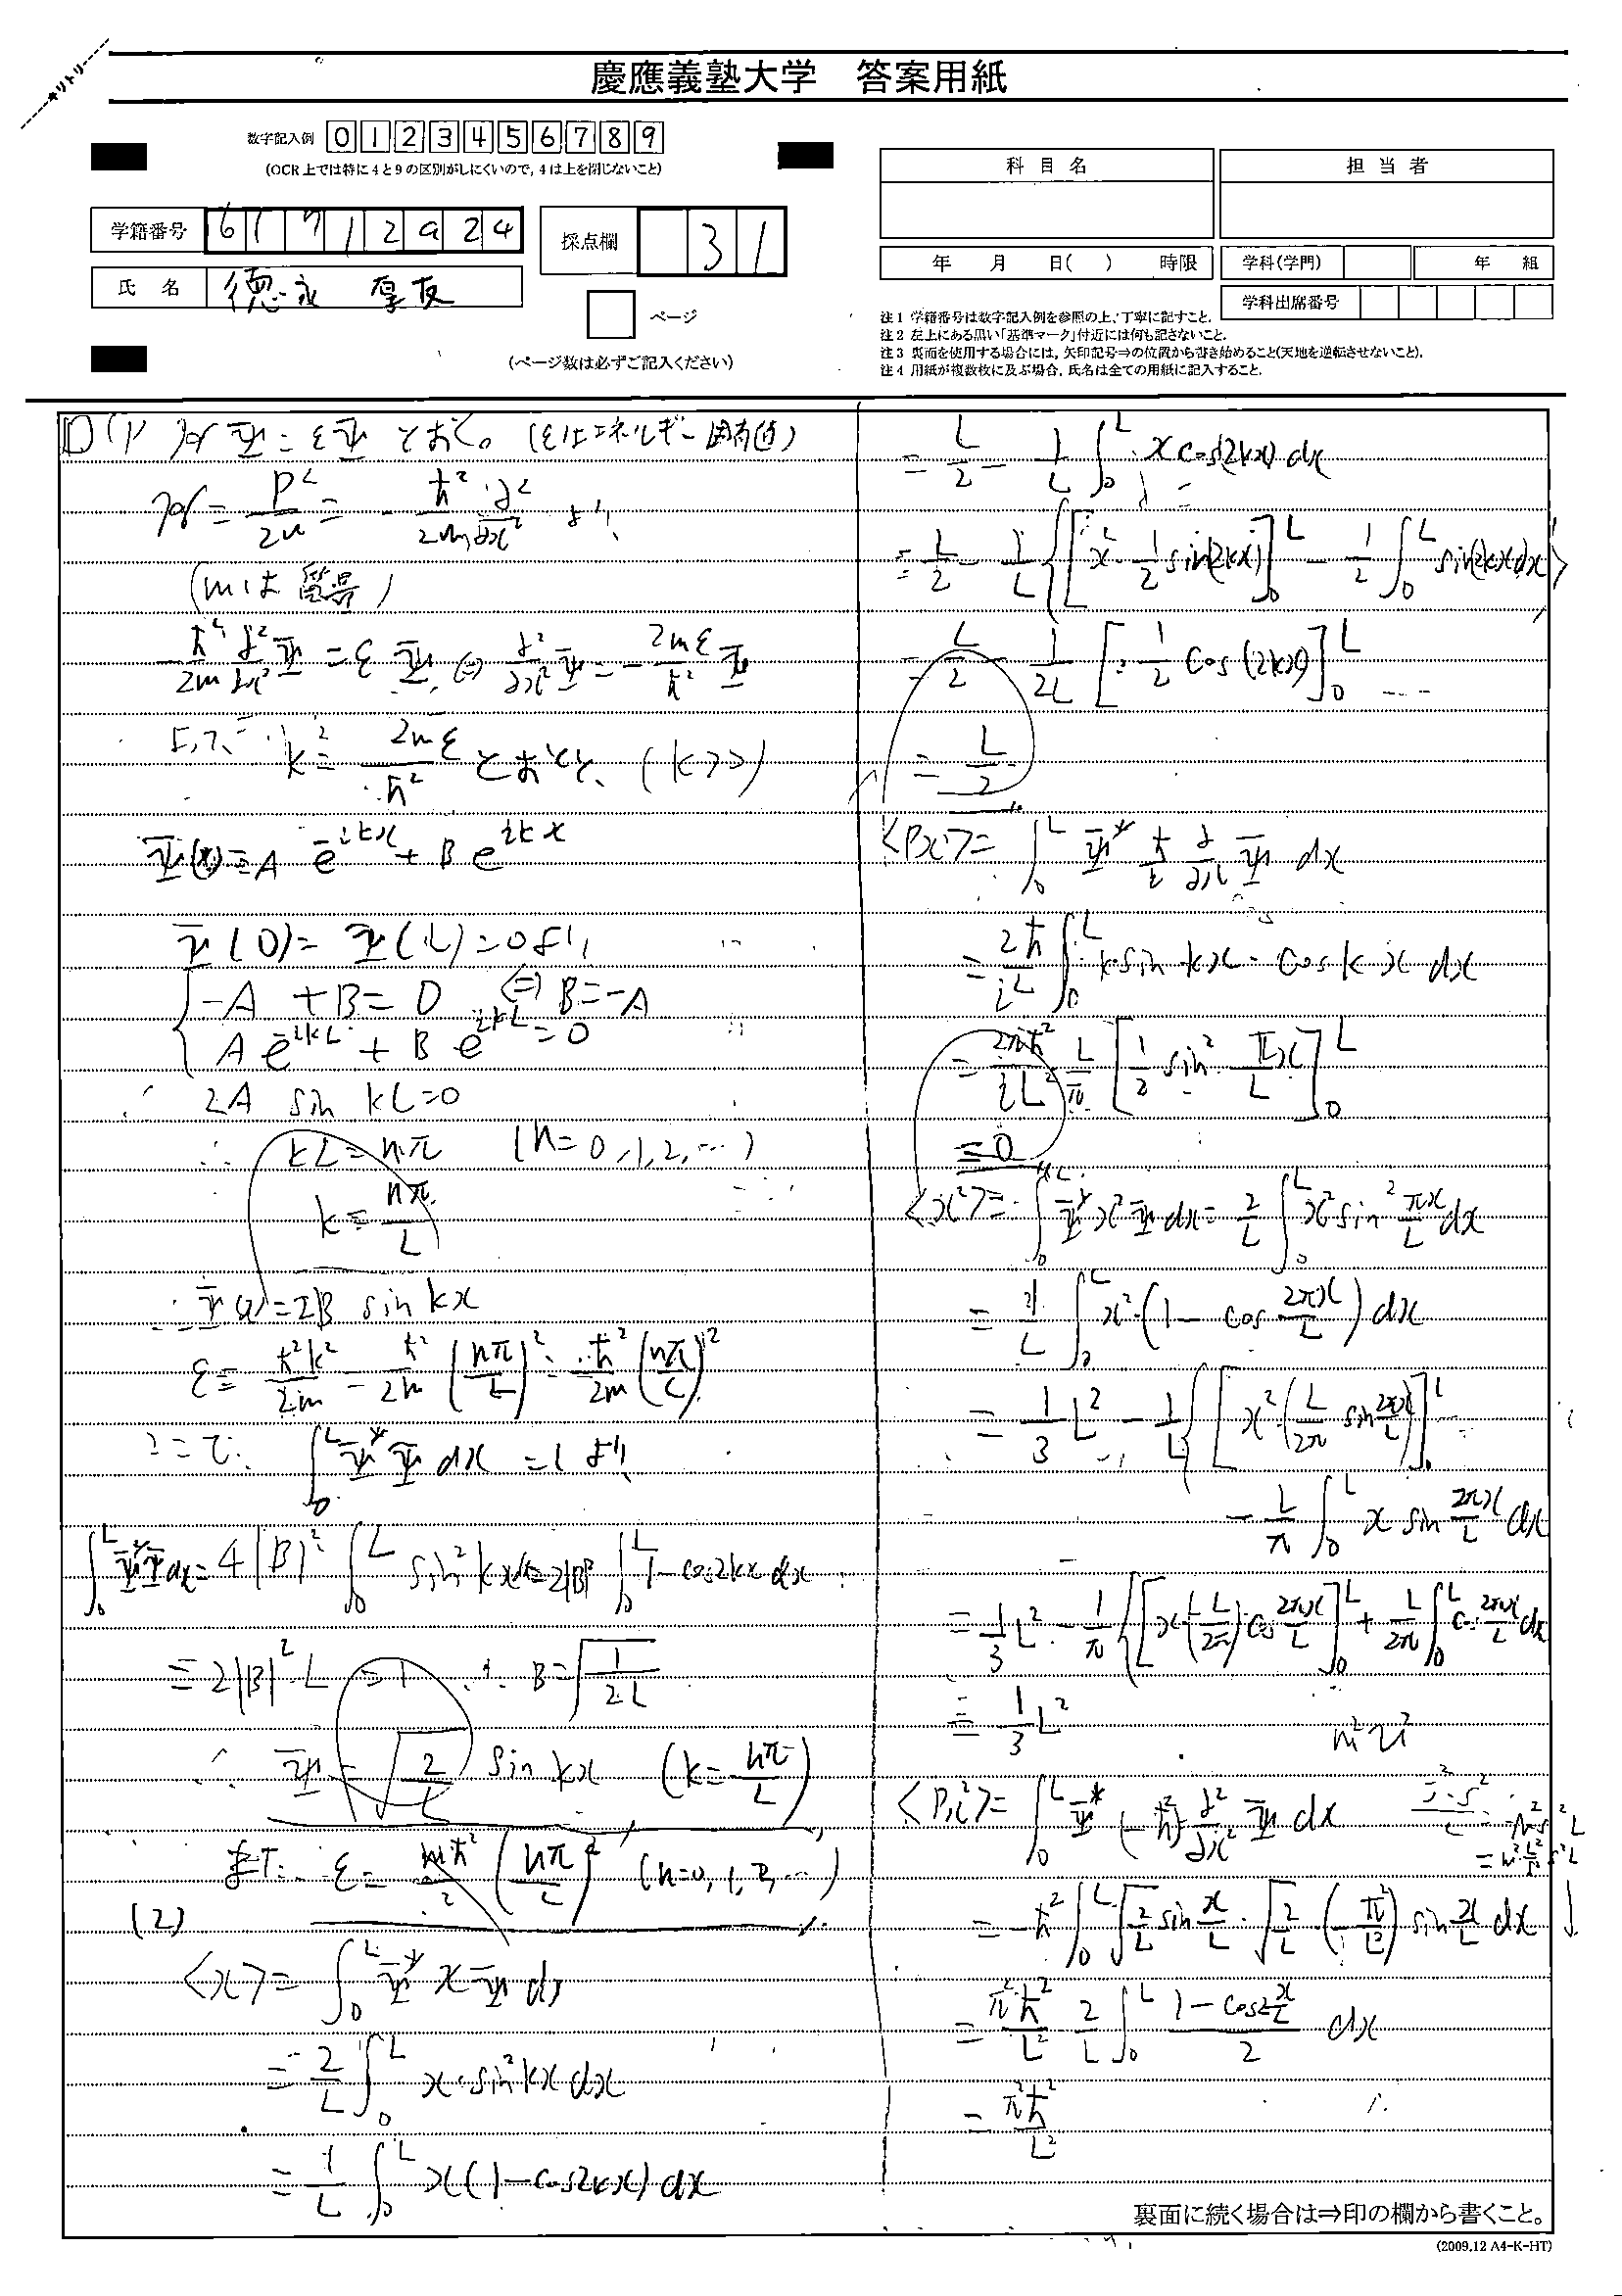 キリトリ
慶應義塾大学 答案用紙
数字記入例 0 1 2 3 4 5 6 7 8 9
(OCR上では特に4と9の区別がしにくいので, 4は上を閉じないこと)
学籍番号 61712924
採点欄 31
氏 名 徳永 厚友
ページ
(ページ数は必ずご記入ください)
科 目 名
担 当 者
年 月 日( ) 時限
学科(学門) 年 組
学科出席番号
注1 学籍番号は数字記入例を参照の上, 丁寧に記すこと.
注2 左上にある黒い「基準マーク」付近には何も記さないこと.
注3 裏面を使用する場合には, 矢印記号⇒の位置から書き始めること(天地を逆転させないこと).
注4 用紙が複数枚に及ぶ場合, 氏名は全ての用紙に記入すること.
(1) ℋΨ = εΨ とおく。(εはエネルギー固有値)
ℋ = P²/2m = -ħ²/2m ∂²/∂x² より,
(mは質量)
-ħ²/2m ∂²/∂x² Ψ = εΨ, ⇔ ∂²/∂x² Ψ = -2mε/ħ² Ψ
k² = 2mε/ħ² とおくと、(k>0)
Ψ(x) = A e^{-ikx} + B e^{ikx}
Ψ(0) = Ψ(L) = 0より,
-A + B = 0 ⇔ B = -A
A e^{-ikL} + B e^{ikL} = 0
2A sin kL = 0
∴ kL = nπ (n=0,1,2,…)
k = nπ/L
∴ Ψ(x) = 2B sin kx
ε = ħ²k²/2m = ħ²/2m (nπ/L)² = ħ²/2m (nπ/L)²
ここで ∫₀^L Ψ*Ψ dx = 1 より,
∫₀^L Ψ*Ψ dx = 4|B|² ∫₀^L sin²kx dx = 2|B|² ∫₀^L 1-cos2kx dx
= 2|B|² L = 1 ∴ B = √(1/2L)
∴ Ψ = √(2/L) sin kx (k = nπ/L)
また ε = mħ²/2 (nπ/L)² (n=0,1,2,…)
(2)
<x> = ∫₀^L Ψ* x Ψ dx
= 2/L ∫₀^L x·sin²kx dx
= 1/L ∫₀^L x(1-cos2kx) dx
= L/2 - 1/L ∫₀^L x cos(2kx) dx
= L/2 - 1/L {[x·1/2 sin(2kx)]₀^L - 1/2 ∫₀^L sin(2kx)dx}
= L/2 - 1/2L [-1/2 cos(2kx)]₀^L
= L/2
<Px> = ∫₀^L Ψ* ħ/i ∂/∂x Ψ dx
= 2ħ/iL ∫₀^L k sin kx · cos kx dx
= 2πħ²/iL² L/π [1/2 sin² πx/L]₀^L
= 0
<x²> = ∫₀^L Ψ* x² Ψ dx = 2/L ∫₀^L x² sin² πx/L dx
= 1/L ∫₀^L x²·(1 - cos 2πx/L) dx
= 1/3 L² - 1/L {[x²·(L/2π sin 2πx/L)]₀^L
- L/π ∫₀^L x sin 2πx/L dx
= 1/3 L² - 1/π {[x(-L/2π) cos 2πx/L]₀^L + L/2π ∫₀^L cos 2πx/L dx
= 1/3 L²
<Px²> = ∫₀^L Ψ* (-ħ²) ∂²/∂x² Ψ dx
= -ħ² ∫₀^L √(2/L) sin x/L · √(2/L) (-π²/L²) sin x/L dx
= π²ħ²/L² 2/L ∫₀^L (1-cos2 x/L)/2 dx
= π²ħ²/L²
裏面に続く場合は⇒印の欄から書くこと。
(2009.12 A4-K-HT)